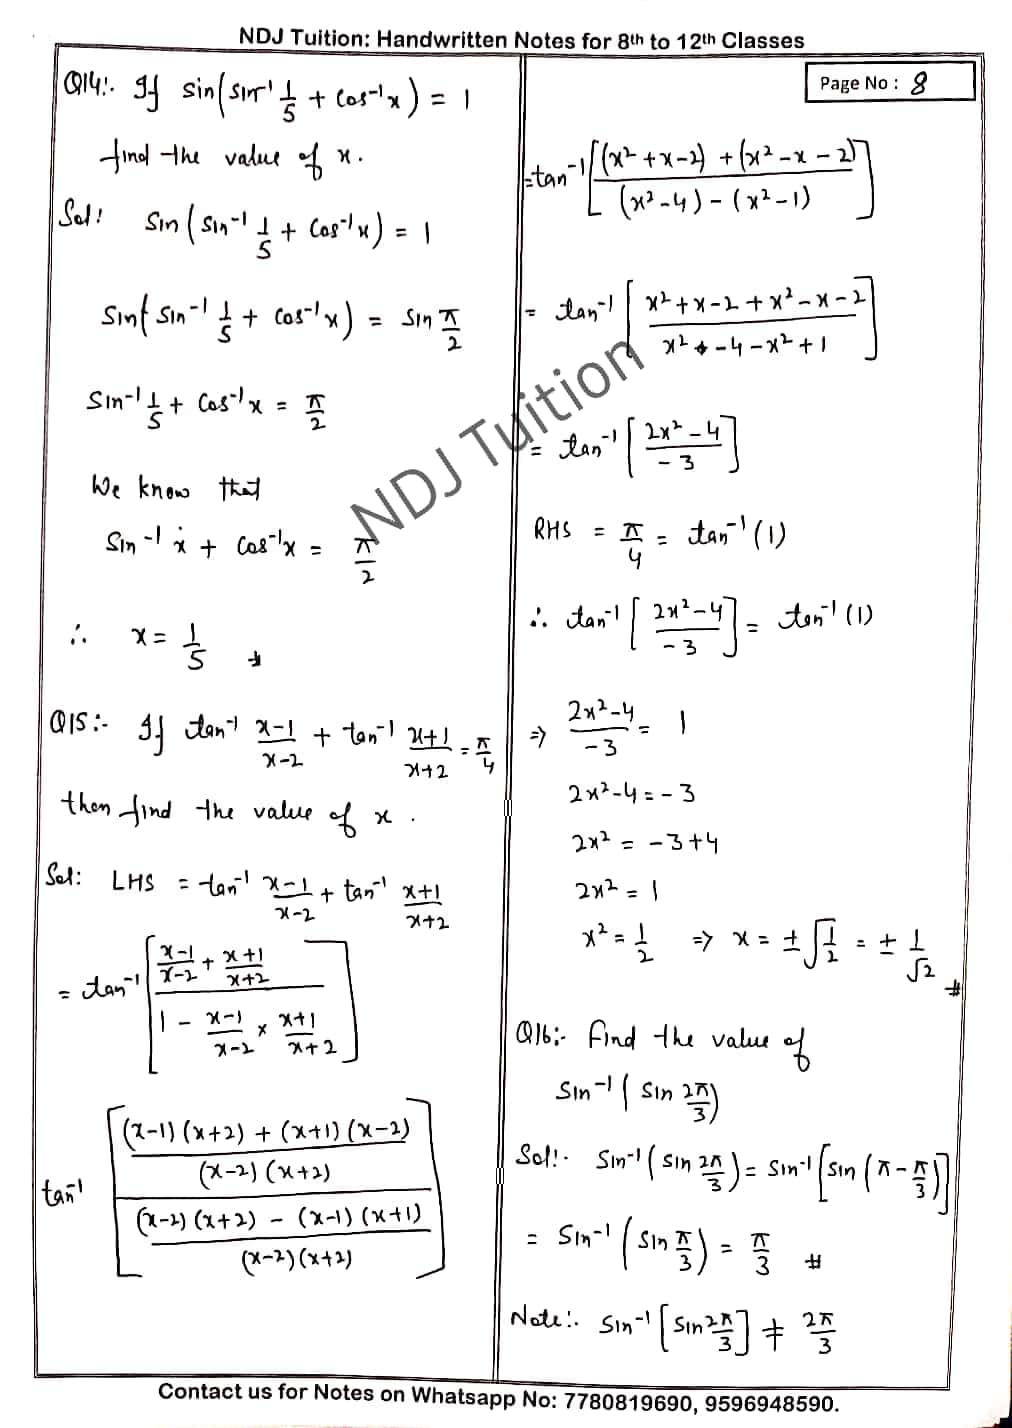 NDJ Tuition: Handwritten Notes for 8th to 12th Classes
Q14:- If sin(sin⁻¹ 1/5 + cos⁻¹x) = 1
find the value of x.
Sol: Sin(sin⁻¹ 1/5 + cos⁻¹x) = 1
Sin(sin⁻¹ 1/5 + cos⁻¹x) = sin π/2
Sin⁻¹ 1/5 + cos⁻¹x = π/2
We know that
Sin⁻¹x + cos⁻¹x = π/2
∴ x = 1/5
Q15:- If tan⁻¹ (x-1)/(x-2) + tan⁻¹ (x+1)/(x+2) = π/4
then find the value of x.
Sol: LHS = tan⁻¹ (x-1)/(x-2) + tan⁻¹ (x+1)/(x+2)
= tan⁻¹ [((x-1)/(x-2) + (x+1)/(x+2)) / (1 - (x-1)/(x-2) × (x+1)/(x+2))]
tan⁻¹ [(((x-1)(x+2) + (x+1)(x-2)) / ((x-2)(x+2))) / (((x-2)(x+2) - (x-1)(x+1)) / ((x-2)(x+2)))]
Page No : 8
= tan⁻¹ [((x²+x-2) + (x²-x-2)) / ((x²-4) - (x²-1))]
= tan⁻¹ [(x²+x-2+x²-x-2) / (x²-4-x²+1)]
= tan⁻¹ [(2x²-4) / -3]
RHS = π/4 = tan⁻¹(1)
∴ tan⁻¹ [(2x²-4) / -3] = tan⁻¹(1)
⇒ (2x²-4)/-3 = 1
2x²-4 = -3
2x² = -3+4
2x² = 1
x² = 1/2 ⇒ x = ±√(1/2) = ± 1/√2 #
Q16:- Find the value of
Sin⁻¹(sin 2π/3)
Sol:- Sin⁻¹(sin 2π/3) = sin⁻¹[sin(π - π/3)]
= Sin⁻¹(sin π/3) = π/3 #
Note:- Sin⁻¹[sin 2π/3] ≠ 2π/3
NDJ Tuition
Contact us for Notes on Whatsapp No: 7780819690, 9596948590.